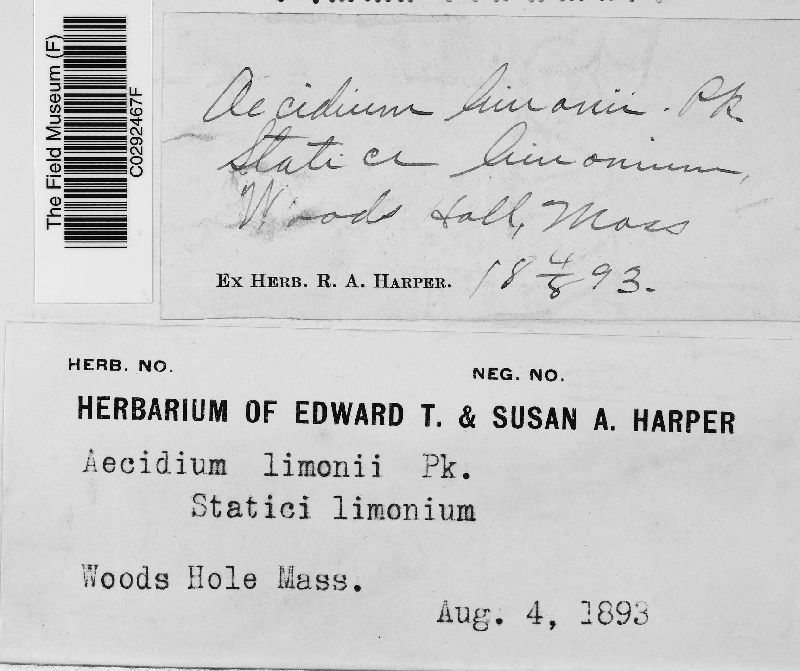 The Field Museum (F)
C0292467F
Aecidium limonii. Pk
Statice limonium,
Woods Holl, Mass
Ex Herb. R. A. Harper. 18 4/8 93.
HERB. NO.
NEG. NO.
HERBARIUM OF EDWARD T. & SUSAN A. HARPER
Aecidium limonii Pk.
Statici limonium
Woods Hole Mass.
Aug. 4, 1893